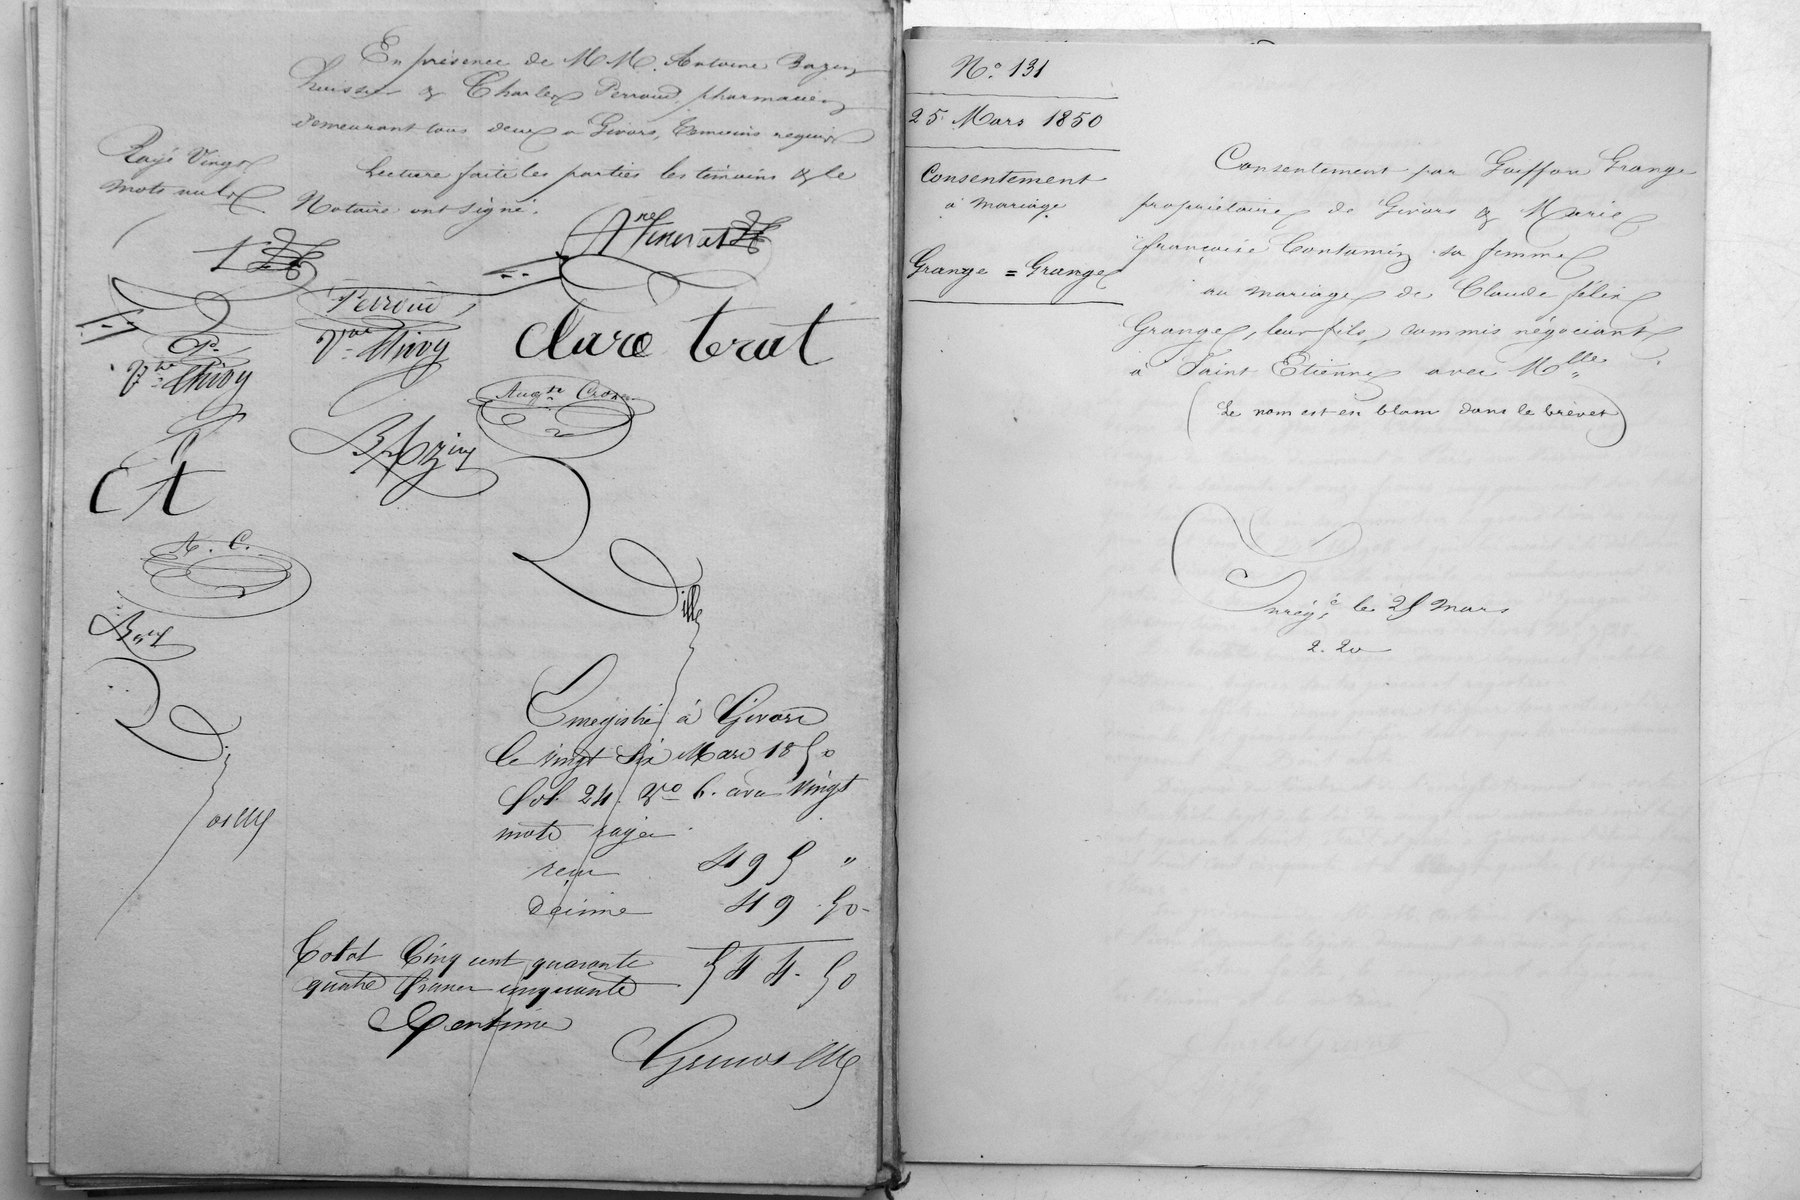 En présence de M M. Antoine Bazin
huissier & Charles Perroud, pharmacien
demeurant tous deux a Givors, témoins requis
Lecture faite les parties les témoins & le
Notaire ont signé.
Rayé Vingt
mots nuls
Perroud
Vve Thivy
Vve Thivy
claro terat
Augte
Bazin
C t
A. C.
Enregistré à Givors
le vingt six Mars 1850
fol. 24. Vo 6. avec vingt
mots rayés
reçu 495 "
décime 49.50
Total Cinq cent quarante
quatre francs cinquante 544.50
Centimes
No. 131
25 Mars 1850
Consentement
à mariage
Grange = Grange
Consentement par Goiffon Grange
propriétaire de Givors & Marie
françoise Contamin sa femme
au mariage de Claude félix
Grange, leur fils, commis négociant
à Saint Etienne avec Mlle
(Le nom est en blanc dans le brevet)
Enregé le 25 mars
2. 20